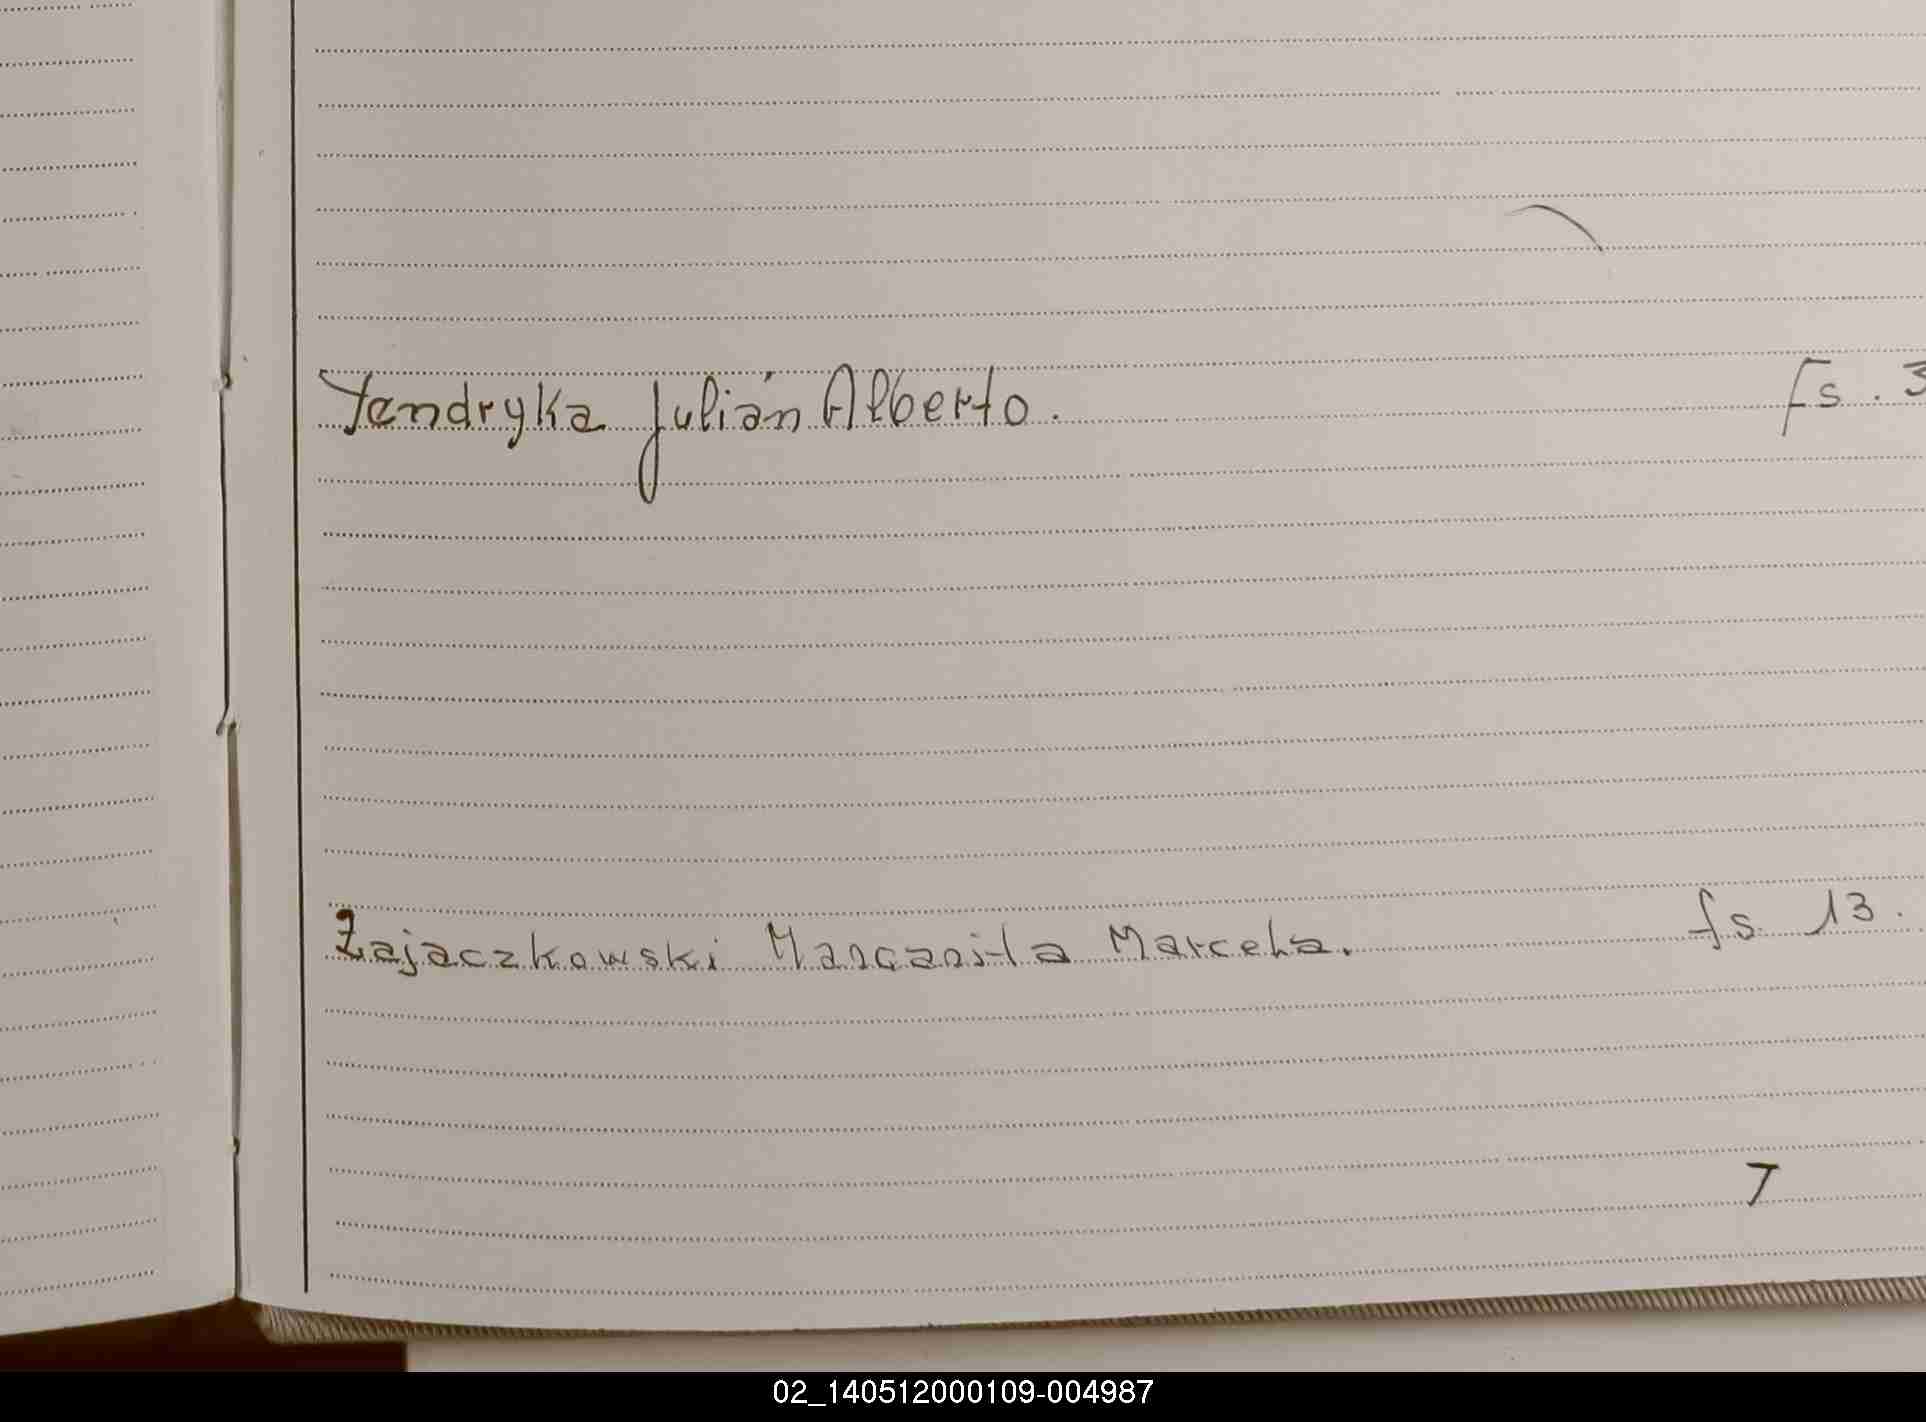 Yendryka Julián Alberto. Fs. 3
Zajaczkowski Marcela. fs 13.
7
02_140512000109-004987